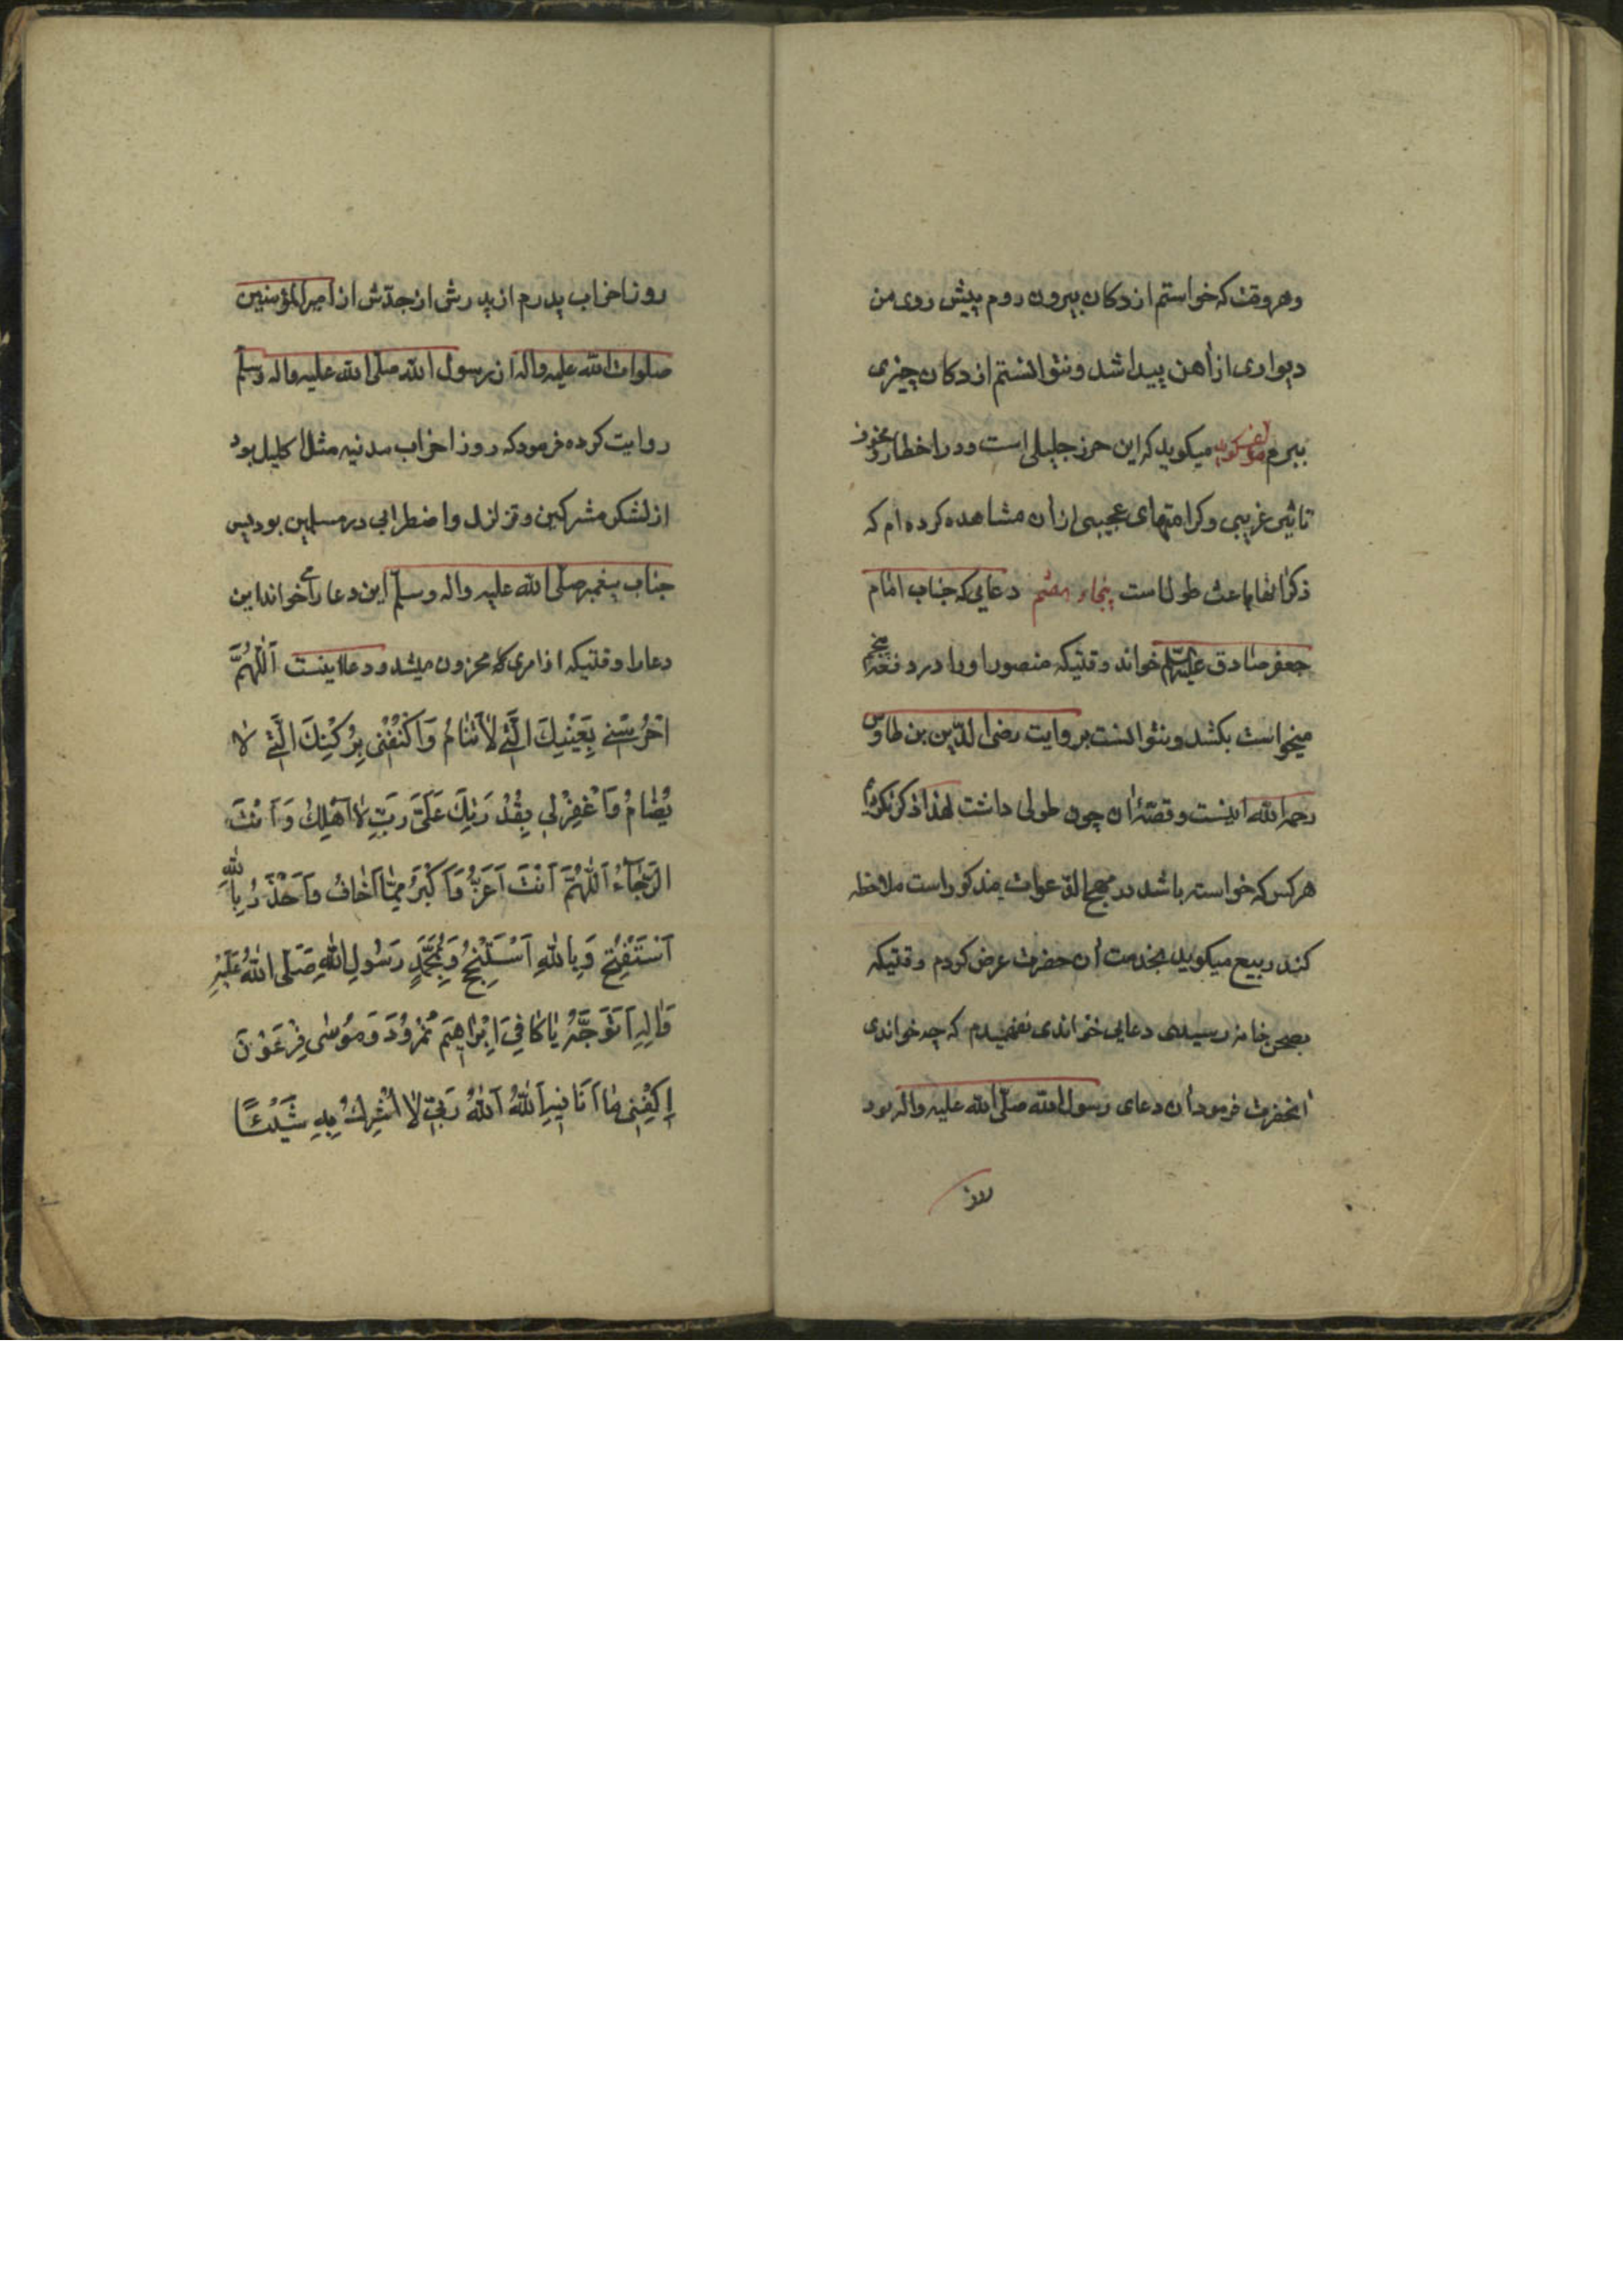 وهر وقت که خواستم از دکان بیرون روم پیش روی من
دیواری از آهن پیدا شد و نتوانستم از دکان چیزی
ببرم میکوید که این حرز جلیلی است ودر اخطار و مخوف
تاثیر غریبی وکرامتهای عجیبی از آن مشاهده کرده ام که
ذکر انها باعث طول است پنجاه دعایی که جناب امام
جعفر صادق علیه السلم خواند وقتیکه منصور اورا در دفعه پنجم
میخواست بکشد ونتوانست بروایت رضی الدین بن طاوس
رحمه الله اینست وقصۀ آن چون طولی داشت لهذا ذکر نکردم
هرکس که خواسته باشد در مهج الدعوات مذکور است ملاحظه
کند ربیع میکوید بخدمت آن حضرت عرض کردم وقتیکه
بصحن خانه رسیدی دعایی خواندی نفهمیدم که چه خواندی
آنحضرت فرمود آن دعای رسول الله صلی الله علیه واله بود
روز احزاب پدرم از پدرش از جدش از امیر المؤمنین
صلوات الله علیه واله از رسول الله صلی الله علیه واله وسلم
روایت کرده فرمود که روز احزاب مدنیه مثل اکلیل بود
از لشکر مشرکین وتزلزل واضطرابی در مسلمین بود پس
جناب پیغمبر صلی الله علیه واله وسلم این دعا را می خواند این
دعا را وقتیکه از امری که محزون میشد ودعا اینست اَللّٰهُمَّ
احْرُسْنِی بِعَیْنِكَ الَّتِی لاٰ تَنٰامُ وَاَکْنُفْنِی بِرُکْنِكَ الَّتِی لاٰ
یُضٰامُ وَاَغْفِرْلِی بِقُدْرَتِكَ عَلَیَّ رَبِّ لاٰ اَهْلِكُ وَاَنْتَ
الرَّجٰآءُ اَللّٰهُمَّ اَنْتَ اَعَزُّ وَاَکْبَرُ مِمّٰا اَخٰافُ وَاَحْذَرُ بِاللّٰهِ
اَسْتَفْتِحُ وَبِاللّٰهِ اَسْتَنْجِحُ وَبِمُحَمَّدٍ رَسُولِ اللّٰهِ صَلَّی اللّٰهُ عَلَیْهِ
وَاٰلِهِ اَتَوَجَّهُ یٰا کٰافِیَ اِبْرٰاهِیمَ نُمْرُودَ وَمُوسٰی فِرْعَوْنَ
اِکْفِنِی مٰا اَنَا فِیهِ اَللّٰهُ اَللّٰهُ رَبِّی لاٰ اُشْرِكُ بِهِ شَیْئًا